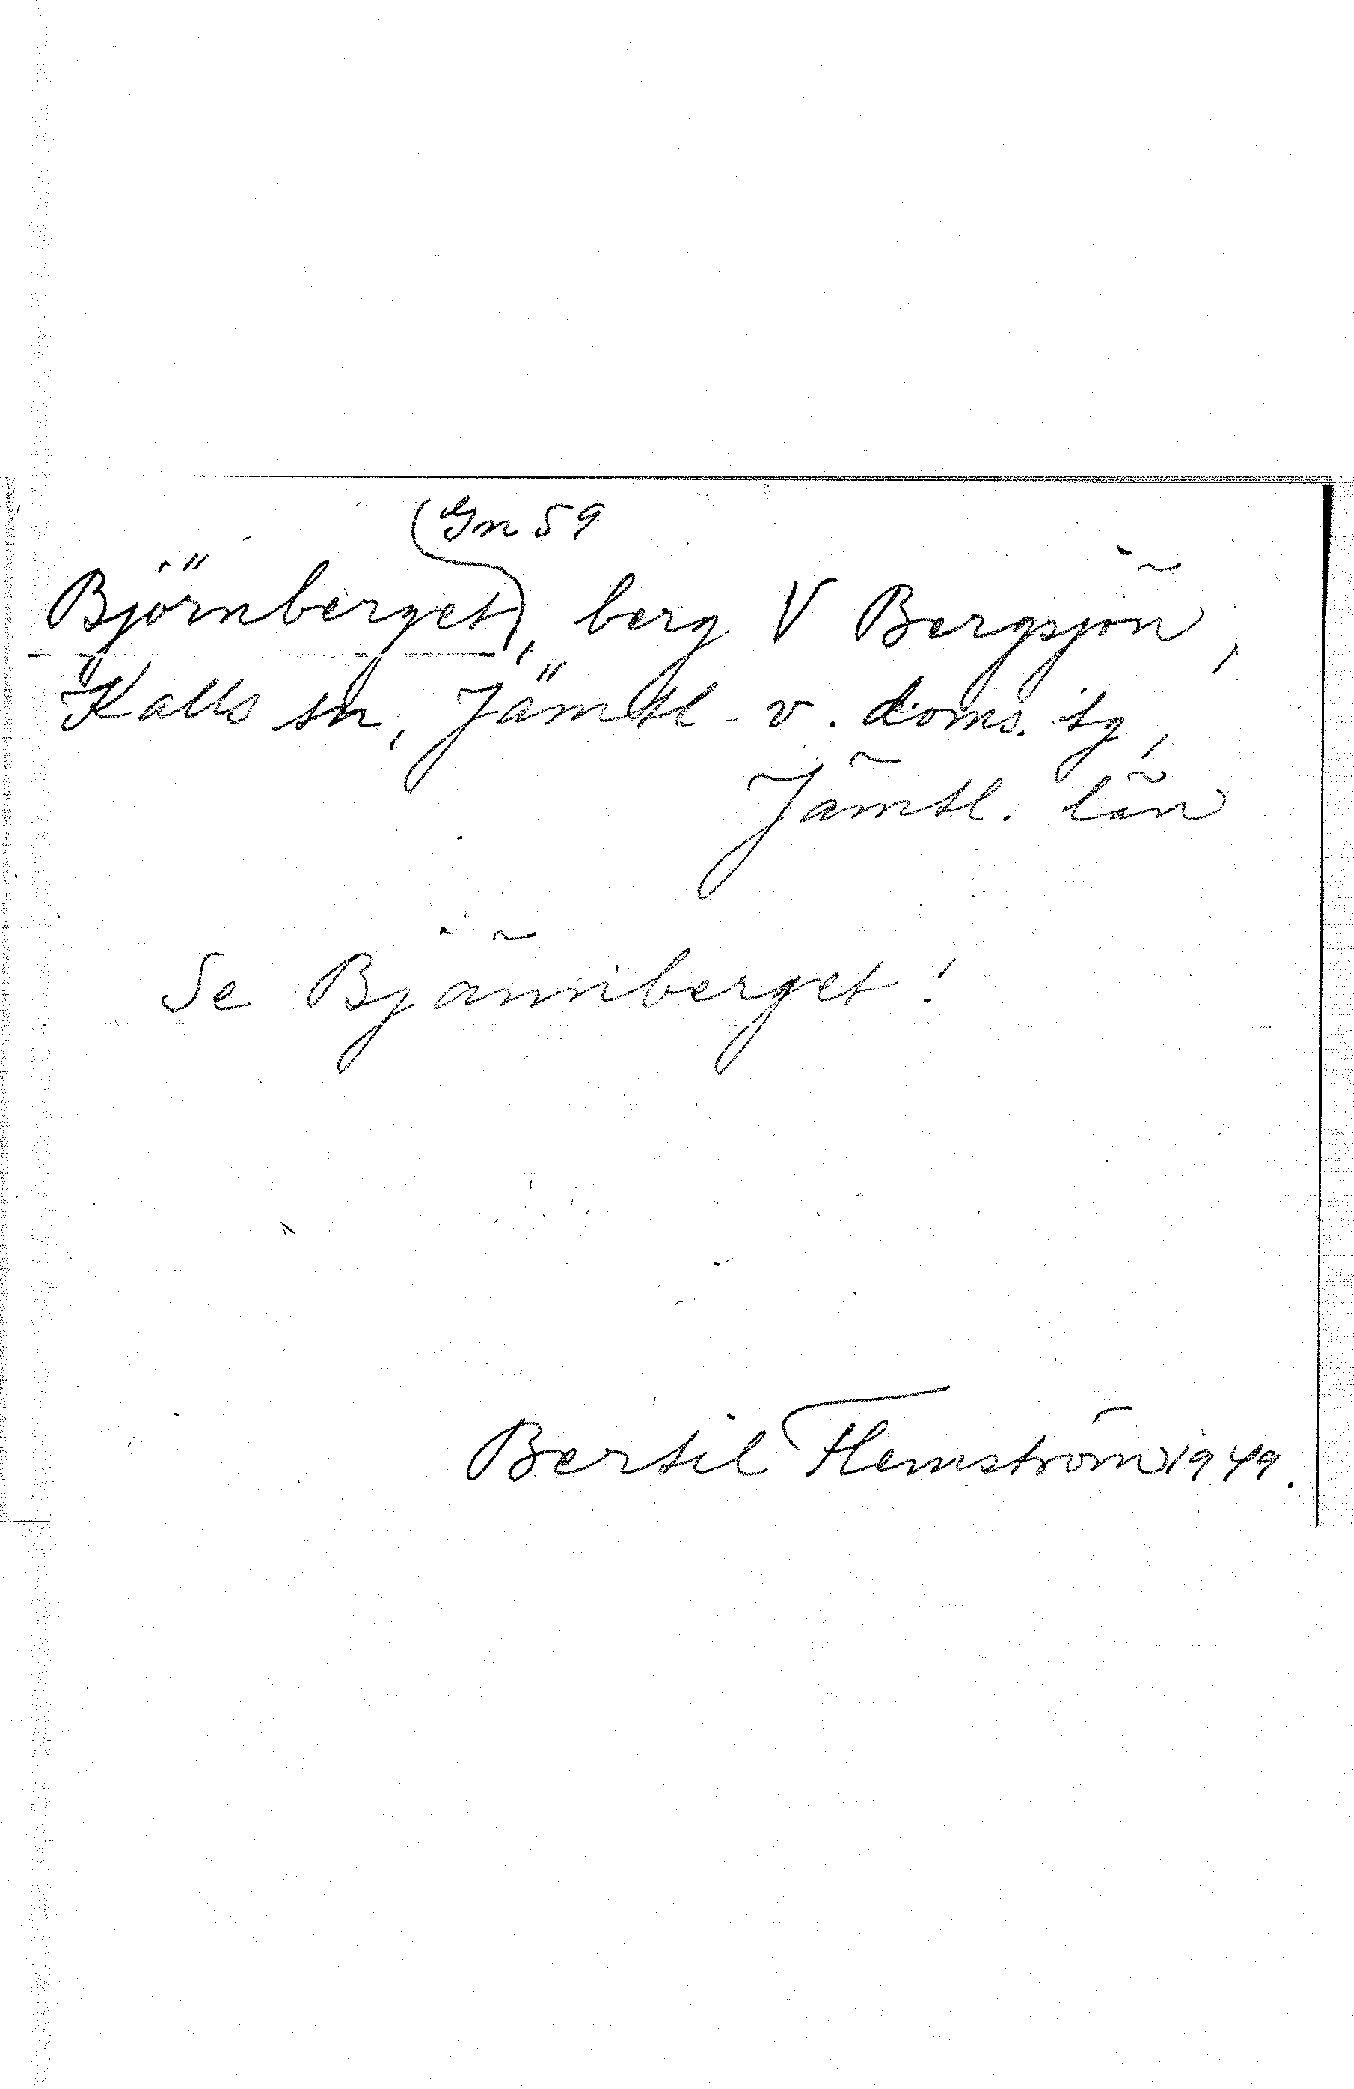 Gn 59
Björnberget, berg V Bergsjön,
Kalls sn, Jämtl. v. doms. tg,
Jämtl. län
Se Bjännberget!
Bertil Flemström 1949.